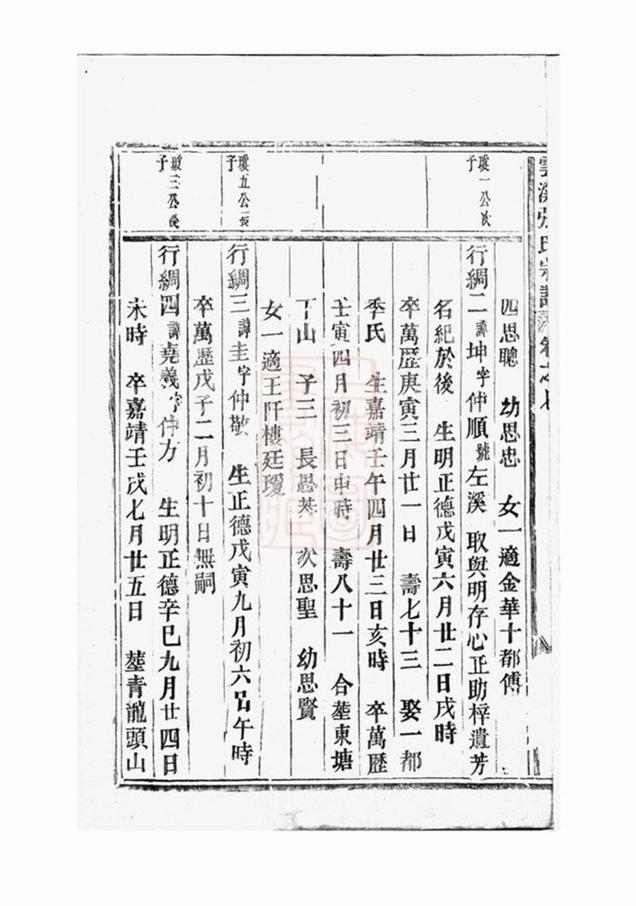 氏宗譜
四思聰 幼思忠 女一適金華十都傅
一公次子
行綢二諱坤字仲順號左溪 取與明存心正助梓遺芳
名紀於後 生明正德戊寅六月廿二日戌時
卒萬歷庚寅三月廿一日 壽七十三 娶一都
季氏 生嘉靖壬午四月廿三日亥時 卒萬歷
壬寅四月初三日申時 壽八十一 合塟東塘
下山 子三 長思恭 次思聖 幼思賢
女一適王阡樓廷璦
五公長子
行綢三諱圭字仲敬 生正德戊寅九月初六日午時
卒萬歷戊子二月初十日無嗣
三公長子
行綢四諱堯義字仲方 生明正德辛巳九月廿四日
未時 卒嘉靖壬戌七月廿五日 塟青龍頭山